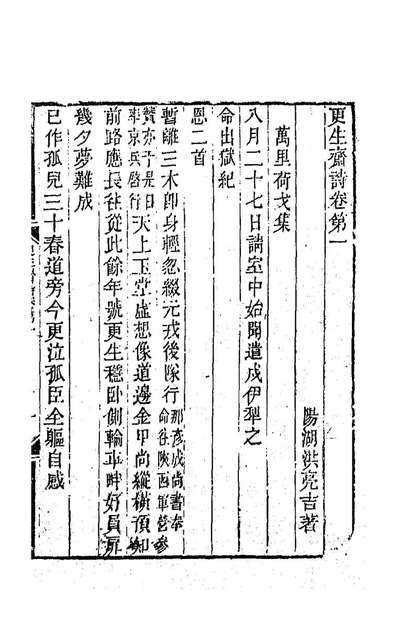 更生齋詩卷第一
陽湖洪亮吉著
萬里荷戈集
八月二十七日請室中始聞遣戍伊犂之
命出獄紀
恩二首
暫離三木即身輕忽綴元戎後隊行那彥成尚書奉命往陝西軍營參
贊亦于是日率京兵啓行天上玉堂虛想像道邊金甲尚縱橫預知
前路應長往從此餘年號更生穩臥側輪車畔好員扉
幾夕夢難成
已作孤兒三十春道旁今更泣孤臣全軀自感